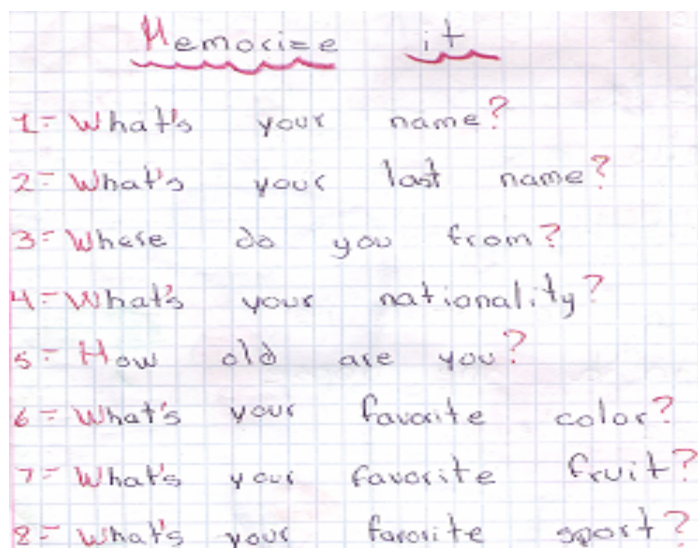 Memorize it
1= What's your name?
2= What's your last name?
3= Where do you from?
4= What's your nationality?
5= How old are you?
6= What's your favorite color?
7= What's your favorite fruit?
8= What's your favorite sport?